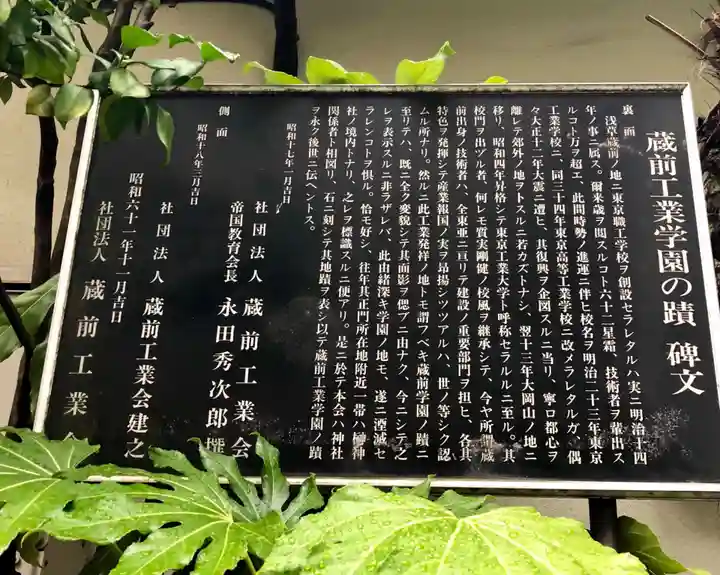 蔵前工業学園の蹟 碑文
裏面
浅草蔵前ノ地ニ東京職工学校ヲ創設セラレタルハ実ニ明治十四
年ノ事ニ属ス。爾来歳ヲ閲スルコト六十二星霜、技術者ヲ輩出ス
ルコト万ヲ超エ、此間時勢ノ進運ニ伴ヒ校名ヲ明治二十三年東京
工業学校ニ、同三十四年東京高等工業学校ニ改メラレタルガ、偶
々大正十二年大震ニ遭ヒ、其復興ヲ企図スルニ当リ、寧ロ都心ヲ
離レテ郊外ノ地ヲトスルニ若カズトナシ、翌十三年大岡山ノ地ニ
移リ、昭和四年昇格シテ東京工業大学ト呼称セラルルニ至ル。其
校門ヲ出ヅル者、何レモ質実剛健ノ校風ヲ継承シテ、今ヤ所謂蔵
前出身ノ技術者ハ、全東亜ニ亘リテ建設ノ重要部門ヲ担ヒ、各其
特色ヲ発揮シテ産業報国ノ実ヲ昂揚シツツアルハ、世ノ等シク認
ムル所ナリ。然ルニ此工業発祥ノ地トモ謂フベキ蔵前学園ノ蹟ニ
至リテハ、既ニ全ク変貌シテ其面影ヲ偲ブニ由ナク、今ニシテ之
レヲ表示スルニ非ラザレバ、此由緒深キ学園ノ地モ、遂ニ湮滅セ
ラレンコトヲ惧ル。恰モ好シ、往年其正門所在地附近一帯ハ榊神
社ノ境内トナリ、之レヲ標識スルニ便アリ。是ニ於テ本会ハ神社
関係者ト相図リ、石ニ刻シテ其地蹟ヲ表シ以テ蔵前工業学園ノ蹟
ヲ永ク後世ニ伝ヘントス。
昭和十七年一月吉日
社団法人 蔵前工業会
帝国教育会長 永田秀次郎 撰
側面
昭和十八年三月吉日
社団法人 蔵前工業会建之
昭和六十一年十一月吉日
社団法人 蔵前工業会